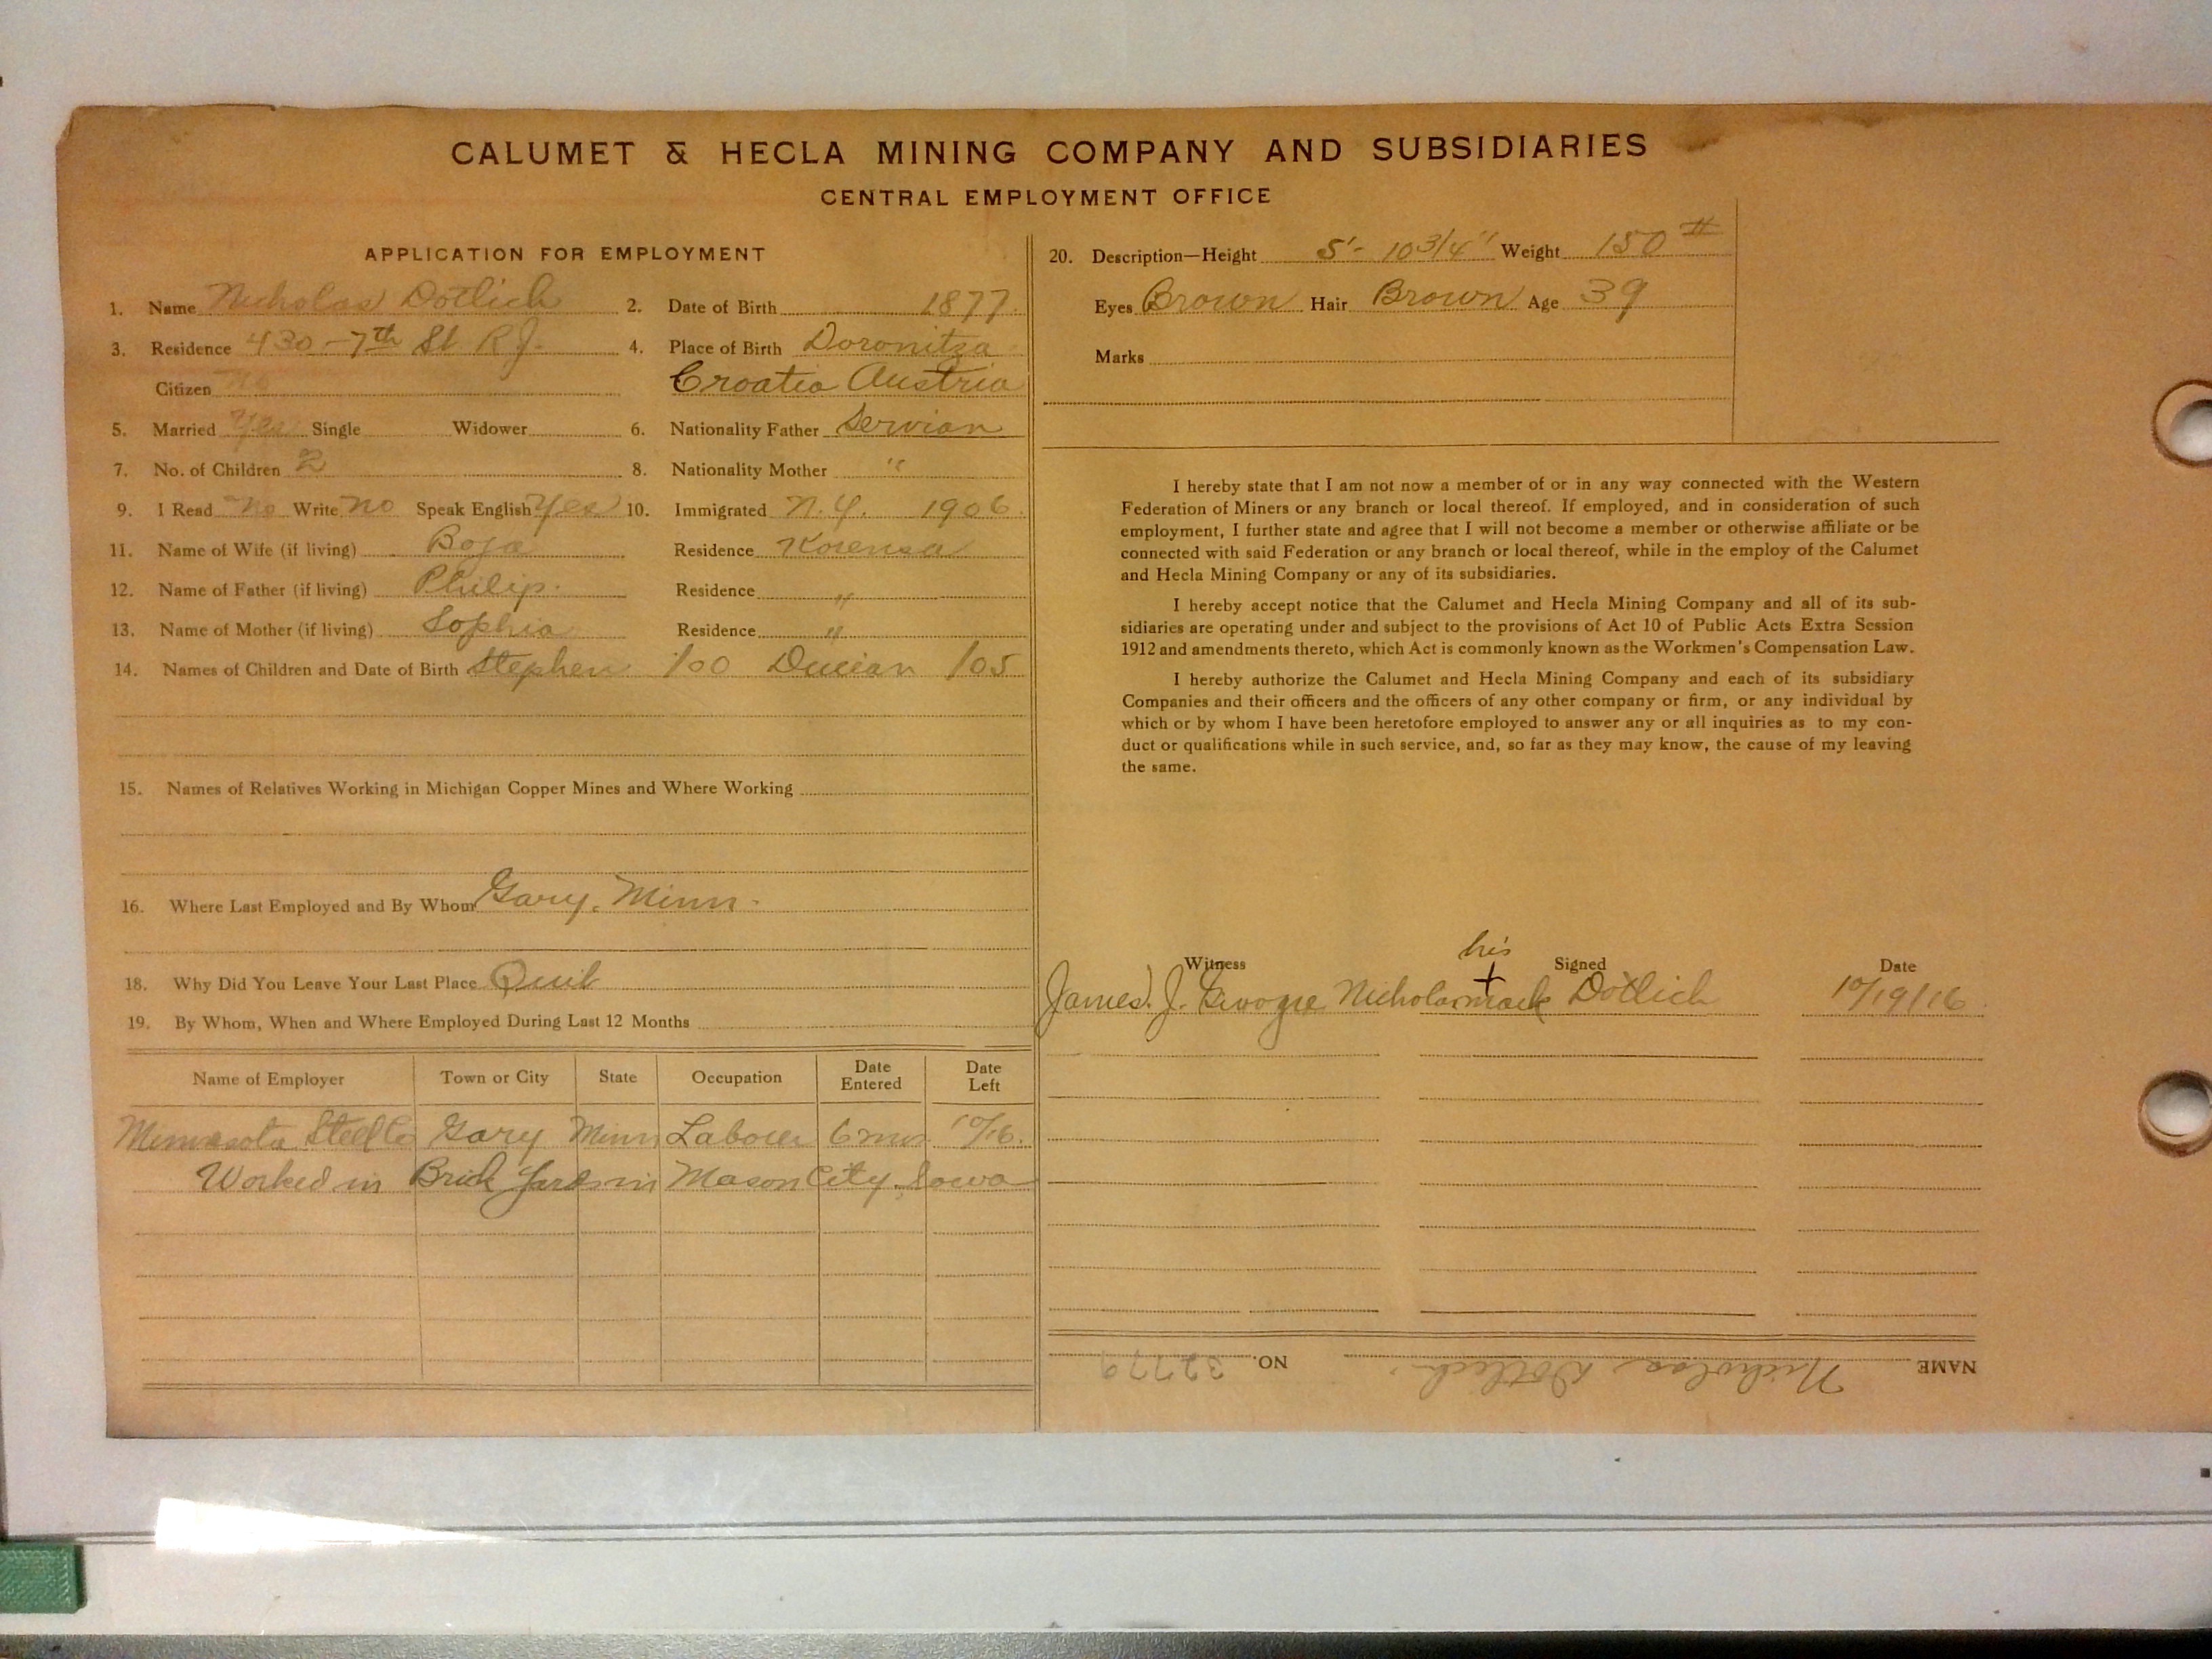 CALUMET & HECLA MINING COMPANY AND SUBSIDIARIES
CENTRAL EMPLOYMENT OFFICE
APPLICATION FOR EMPLOYMENT
1. Name Nicholas Dotlich 2. Date of Birth 1877
3. Residence 430-7th St R.J. 4. Place of Birth Doronitza
Citizen No Croatia Austria
5. Married Yes Single Widower 6. Nationality Father Servian
7. No. of Children 2 8. Nationality Mother "
9. I Read No Write no Speak English Yes 10. Immigrated N.Y. 1906
11. Name of Wife (if living) Boja Residence
12. Name of Father (if living) Philip Residence "
13. Name of Mother (if living) Sophia Residence "
14. Names of Children and Date of Birth Stephen /00 /05
15. Names of Relatives Working in Michigan Copper Mines and Where Working
16. Where Last Employed and By Whom Gary, Minn.
18. Why Did You Leave Your Last Place Quit
19. By Whom, When and Where Employed During Last 12 Months
Name of Employer Town or City State Occupation Date Entered Date Left
Minnesota Steel Co Gary Minn Laborer 6 mos. 10/16.
Worked in Brick Yards in Mason City, Iowa
20. Description—Height 5'- 10 3/4" Weight 150 #
Eyes Brown Hair Brown Age 39
Marks
I hereby state that I am not now a member of or in any way connected with the Western
Federation of Miners or any branch or local thereof. If employed, and in consideration of such
employment, I further state and agree that I will not become a member or otherwise affiliate or be
connected with said Federation or any branch or local thereof, while in the employ of the Calumet
and Hecla Mining Company or any of its subsidiaries.
I hereby accept notice that the Calumet and Hecla Mining Company and all of its sub-
sidiaries are operating under and subject to the provisions of Act 10 of Public Acts Extra Session
1912 and amendments thereto, which Act is commonly known as the Workmen's Compensation Law.
I hereby authorize the Calumet and Hecla Mining Company and each of its subsidiary
Companies and their officers and the officers of any other company or firm, or any individual by
which or by whom I have been heretofore employed to answer any or all inquiries as to my con-
duct or qualifications while in such service, and, so far as they may know, the cause of my leaving
the same.
his
Witness Signed Date
James J. Nicholas + mark Dotlich 10/19/16
NAME Nicholas Dotlich. NO. 32779